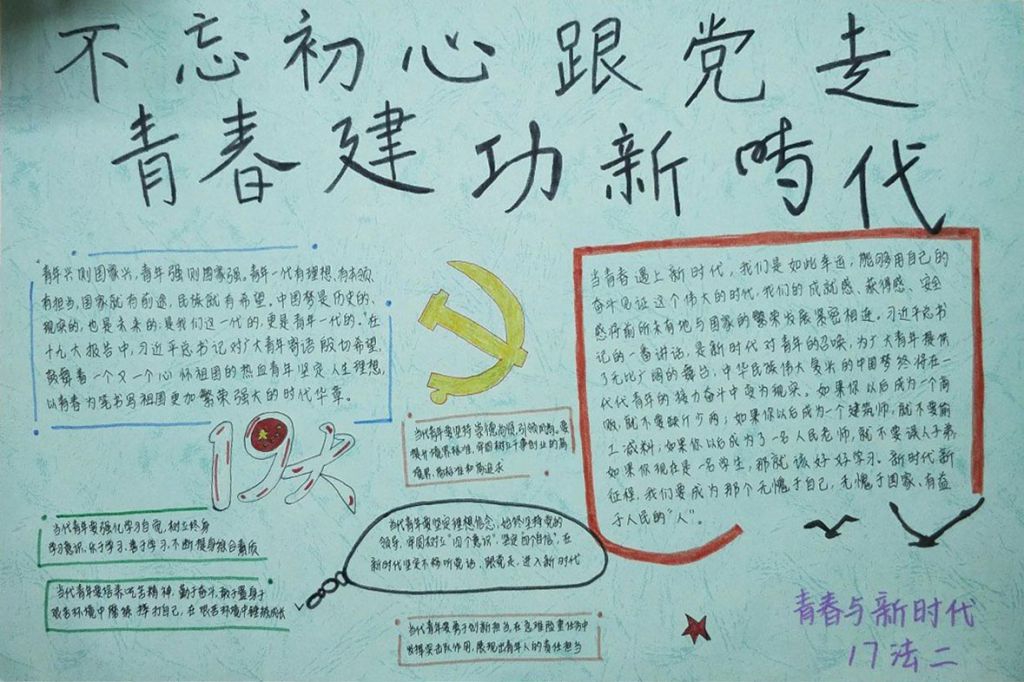 不忘初心跟党走
青春建功新时代
青年兴则国家兴,青年强则国家强。青年一代有理想、有本领、
有担当,国家就有前途,民族就有希望。中国梦是历史的、
现实的,也是未来的;是我们这一代的,更是青年一代的。"在
十九大报告中,习近平总书记对广大青年寄语殷切希望,
鼓舞着一个又一个心怀祖国的热血青年坚定人生理想,
以青春为笔书写祖国更加繁荣强大的时代华章。
19大
当代青年要强化学习自觉,树立终身
学习意识,乐于学习,善于学习,不断提身综合素质
当代青年要培养吃苦精神,勤于奋斗,敢于置身于
艰苦环境中磨练捍打自己,在艰苦环境中锤炼成长
当代青年要坚持崇德尚贤,引领风尚。要
提升境界标准,牢固树立干事创业的高
境界、高标准和高追求
当代青年要坚定理想信念,始终坚持党的
领导,牢固树立"四个意识",坚定四个自信",在
新时代坚定不移听党话、跟党走,进入新时代
当代青年要勇于创新担当,在急难险重任务中
发挥突击队作用,展现出青年人的责任担当
当青春遇上新时代,我们是如此幸运,能够用自己的
奋斗见证这个伟大的时代,我们的成就感、获得感、安全
感将前所未有地与国家的繁荣发展紧密相连。习近平总书
记的一番讲话,是新时代对青年的召唤,为广大青年提供
了无比广阔的舞台,中华民族伟大复兴的中国梦终将在一
代代青年的接力奋斗中变为现实。如果你以后成为一个商
贩,就不要缺斤少两;如果你以后成为一个建筑师,就不要偷
工减料;如果你以后成为了一名人民老师,就不要误人子弟,
如果你现在是一名学生,那就该好好学习。新时代新
征程,我们要成为那个无愧于自己、无愧于国家、有益
于人民的"人"。
青春与新时代
17法二